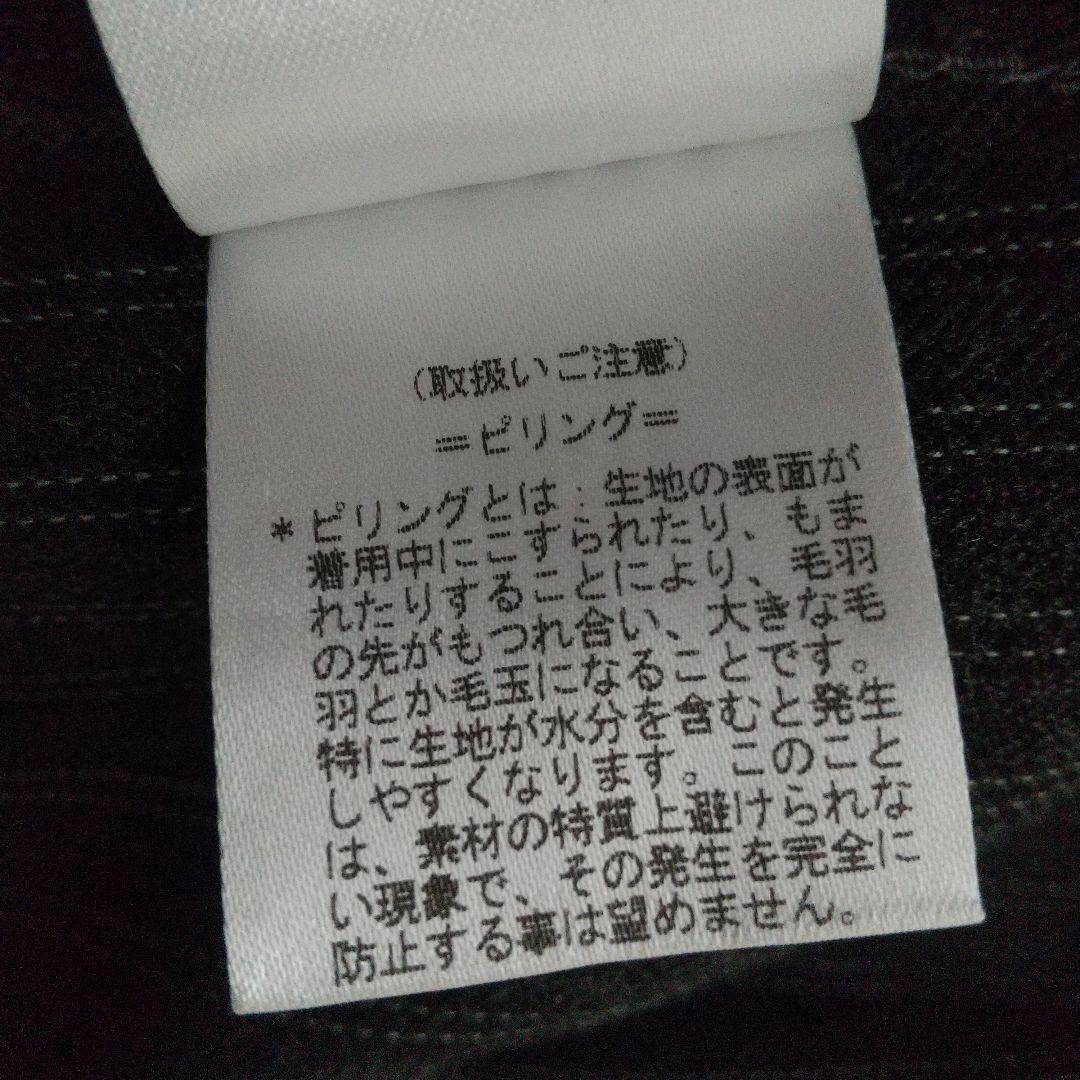 (取扱いご注意)
=ピリング=
*ピリングとは:生地の表面が
着用中にこすられたり、もま
れたりすることにより、毛羽
の先がもつれ合い、大きな毛
羽とか毛玉になることです。
特に生地が水分を含むと発生
しやすくなります。このこと
は、素材の特質上避けられな
い現象で、その発生を完全に
防止する事は望めません。